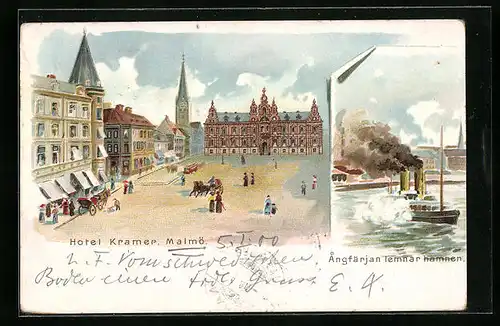 Hotel Kramer. Malmö. 5.5.00
Ångfärjan lemnar hamnen.
L. F. Vom schwedischen
Boden einen Gruss E. A.